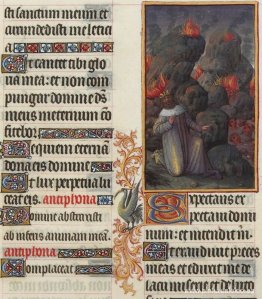 sti saccum meum et
circundedisti me leticia
Ut cantet tibi glo
ria mea: et non com
pungar domine deus
meus in eternum con
fitebor
Requiem eternam
dona eis domine
Et lux perpetua lu
ceat eis. antiphona
Domine abstraxisti
ab inferis animam meam.
antiphona
Complaceat
Expectans ex
pectavi domi
num: et intendit m
Et exaudiuit preces
meas et eduxit me de
lacu miserie et de luto